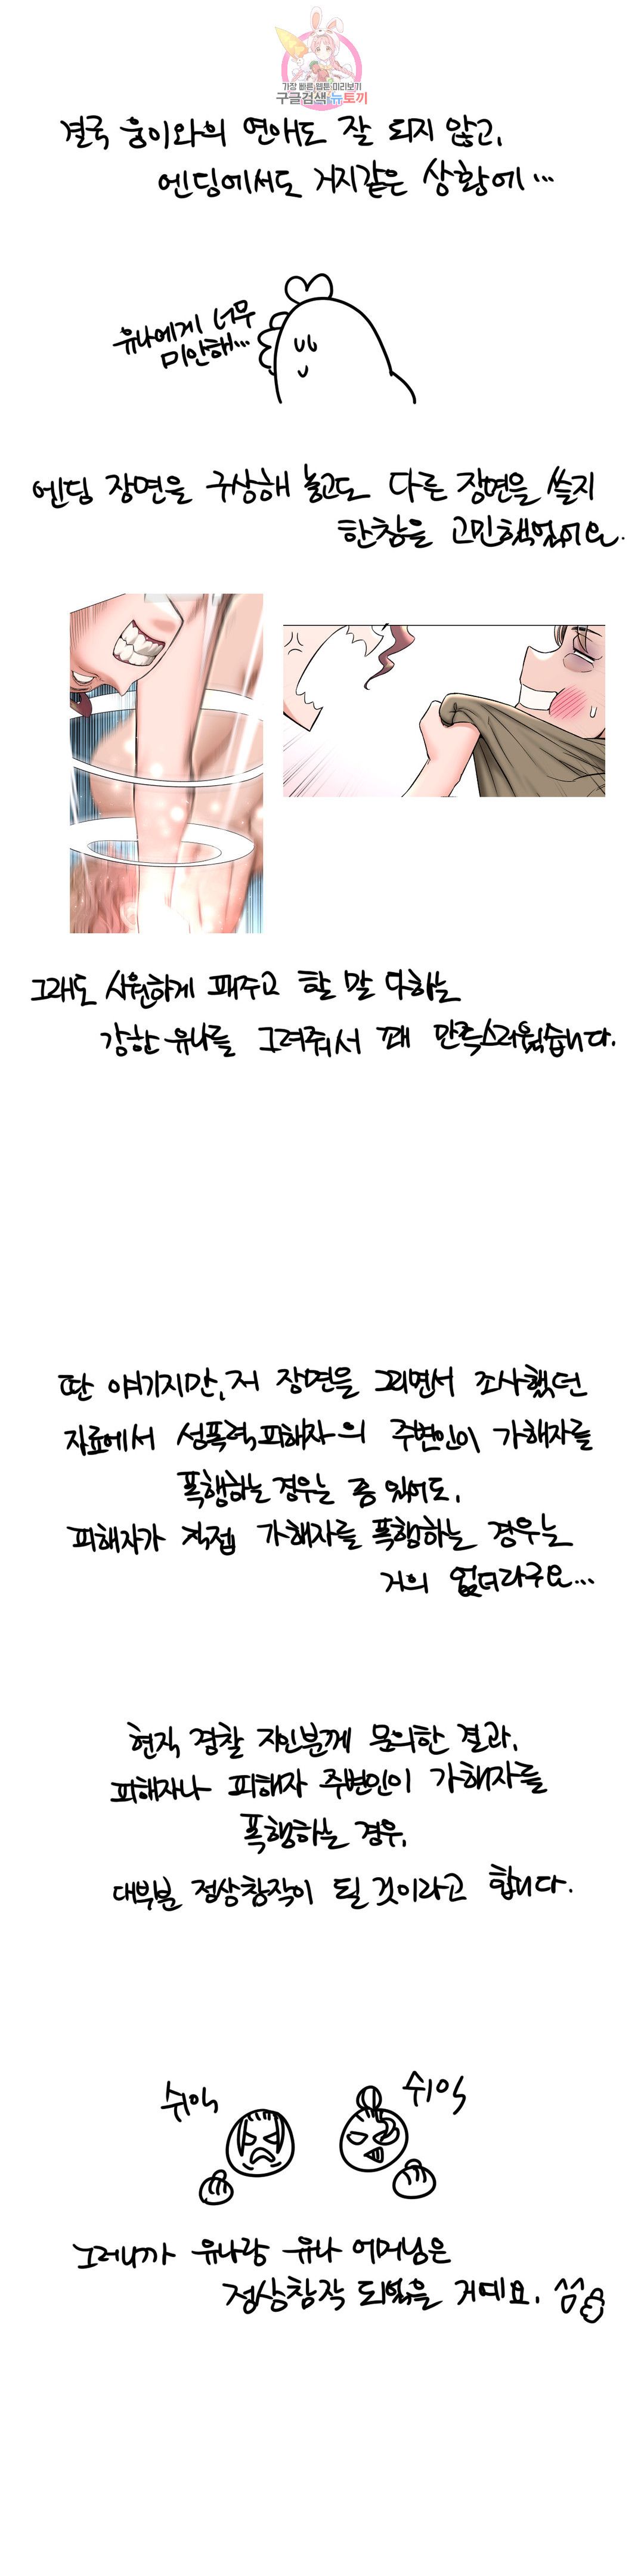 가장 빠른 웹툰 미리보기
구글검색 뉴토끼
결국 웅이와의 연애도 잘 되지 않고,
엔딩에서도 거지같은 상황에...
유나에게 너무
미안해...
엔딩 장면을 구상해 놓고도 다른 장면을 쓸지
한참을 고민했었어요.
그래도 시원하게 패주고 할 말 다하는
강한 유나를 그려줘서 꽤 만족스러웠습니다.
딴 얘기지만, 저 장면을 그리면서 조사했던
자료에서 성폭력피해자의 주변인이 가해자를
폭행하는 경우는 좀 있어도,
피해자가 직접 가해자를 폭행하는 경우는
거의 없더라구요...
현직 경찰 지인분께 문의한 결과,
피해자나 피해자 주변인이 가해자를
폭행하는 경우,
대부분 정상참작이 될 것이라고 합니다.
쉬익
쉬익
그러니까 유나랑 유나 어머님은
정상참작 되었을 거예요. ^^